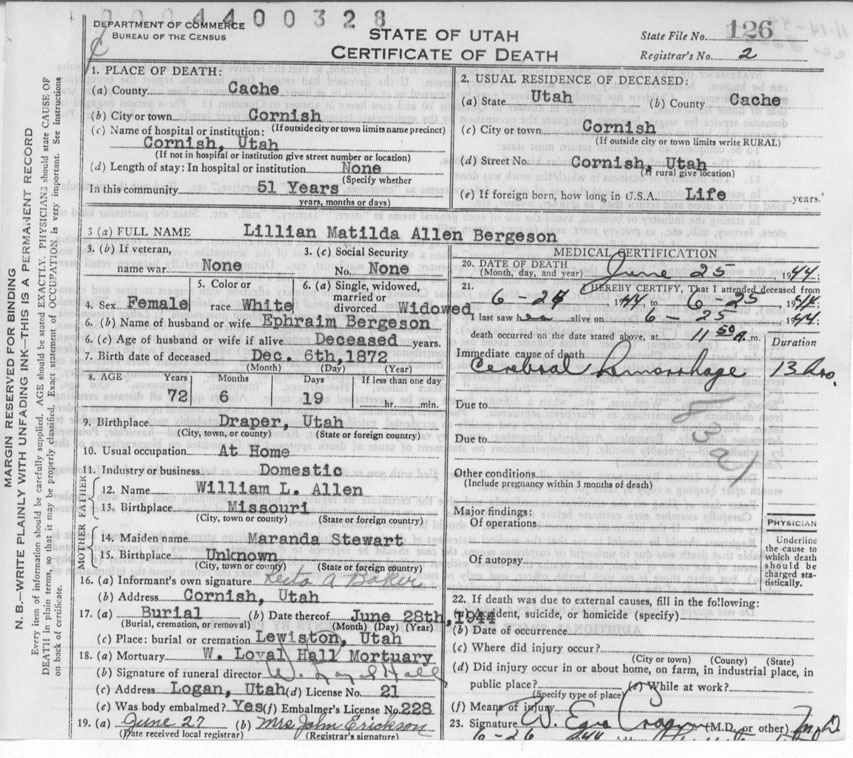 0004400328
DEPARTMENT OF COMMERCE
BUREAU OF THE CENSUS
STATE OF UTAH
CERTIFICATE OF DEATH
State File No. 126
Registrar's No. 2
MARGIN RESERVED FOR BINDING
N. B.—WRITE PLAINLY WITH UNFADING INK—THIS IS A PERMANENT RECORD
Every item of information should be carefully supplied. AGE should be stated EXACTLY. PHYSICIANS should state CAUSE OF
DEATH in plain terms, so that it may be properly classified. Exact statement of OCCUPATION is very important. See instructions
on back of certificate.
1. PLACE OF DEATH:
(a) County Cache
(b) City or town Cornish
(If outside city or town limits name precinct)
(c) Name of hospital or institution:
Cornish, Utah
(If not in hospital or institution give street number or location)
(d) Length of stay: In hospital or institution None
(Specify whether
In this community 51 Years
years, months or days)
2. USUAL RESIDENCE OF DECEASED:
(a) State Utah (b) County Cache
(c) City or town Cornish
(If outside city or town limits write RURAL)
(d) Street No. Cornish, Utah
(If rural give location)
(e) If foreign born, how long in U.S.A. Life years.
3 (a) FULL NAME Lillian Matilda Allen Bergeson
3. (b) If veteran,
name war None
3. (c) Social Security
No. None
4. Sex Female
5. Color or
race White
6. (a) Single, widowed,
married or
divorced Widowed
6. (b) Name of husband or wife Ephraim Bergeson
6. (c) Age of husband or wife if alive Deceased years.
7. Birth date of deceased Dec. 6th, 1872
(Month) (Day) (Year)
8. AGE Years Months Days If less than one day
72 6 19 hr. min.
9. Birthplace Draper, Utah
(City, town, or county) (State or foreign country)
10. Usual occupation At Home
11. Industry or business Domestic
FATHER
12. Name William L. Allen
13. Birthplace Missouri
(City, town or county) (State or foreign country)
MOTHER
14. Maiden name Maranda Stewart
15. Birthplace Unknown
(City, town or county) (State or foreign country)
16. (a) Informant's own signature A Baker
(b) Address Cornish, Utah
17. (a) Burial (b) Date thereof June 28th, 1944
(Burial, cremation, or removal) (Month) (Day) (Year)
(c) Place: burial or cremation Lewiston, Utah
18. (a) Mortuary W. Loyal Hall Mortuary
(b) Signature of funeral director W. Loyal Hall
(c) Address Logan, Utah (d) License No. 21
(e) Was body embalmed? Yes (f) Embalmer's License No. 228
19. (a) June 27 (b) Mrs John Erickson
(Date received local registrar) (Registrar's signature)
MEDICAL CERTIFICATION
20. DATE OF DEATH
(Month, day, and year) June 25 1944
21. I HEREBY CERTIFY, That I attended deceased from
6 - 1944, to 6-25, 1944
I last saw her alive on 6 - 25 1944;
death occurred on the date stated above, at 11 50 A. m.
Duration
Immediate cause of death
Cerebral hemorrhage 13 hrs.
83a
Due to
Due to
Other conditions
(Include pregnancy within 3 months of death)
Major findings:
Of operations
Of autopsy
PHYSICIAN
Underline
the cause to
which death
should be
charged sta-
tistically.
22. If death was due to external causes, fill in the following:
(a) Accident, suicide, or homicide (specify)
(b) Date of occurrence
(c) Where did injury occur?
(City or town) (County) (State)
(d) Did injury occur in or about home, on farm, in industrial place, in
public place?
(Specify type of place)
(e) While at work?
(f) Means of injury
23. Signature W. (M.D. or other) M.D.
6-26